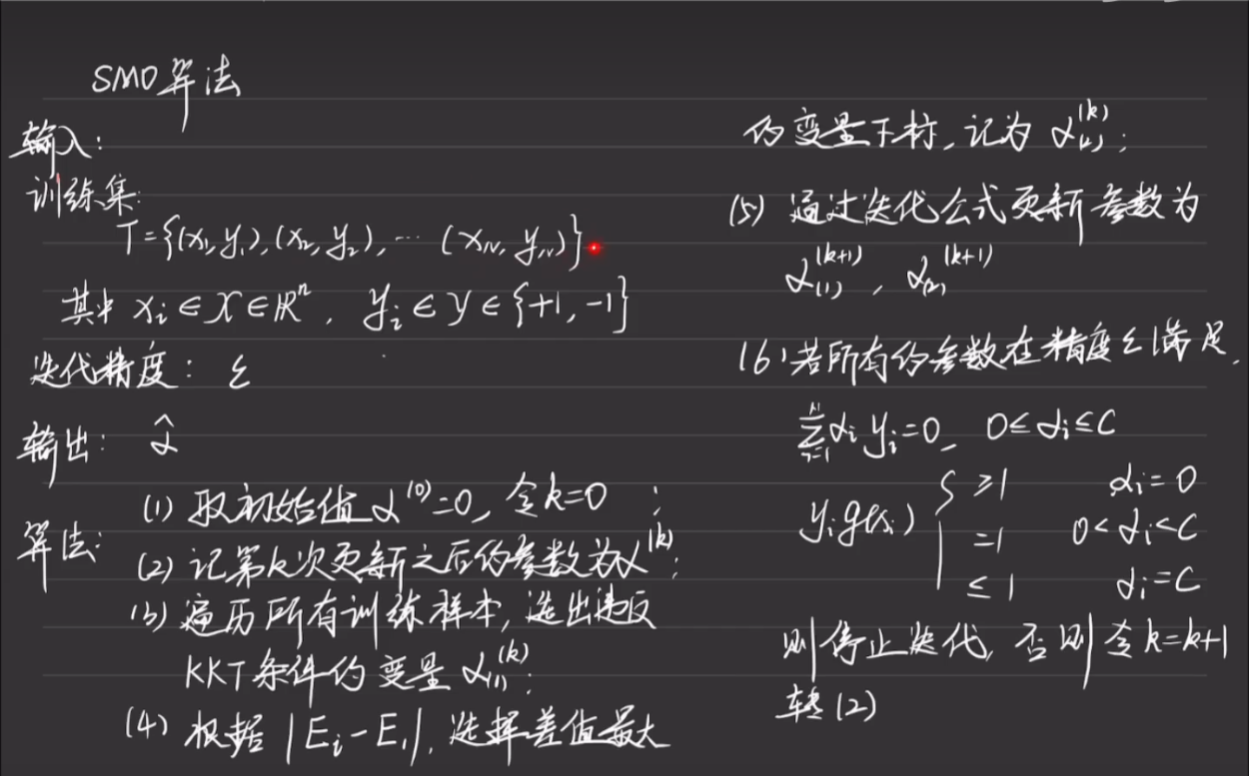 SMO算法
输入:
训练集:
T={(x₁,y₁),(x₂,y₂),… (x_N,y_N)}
其中 xᵢ∈X∈ℝⁿ, yᵢ∈Y∈{+1,-1}
迭代精度: ε
输出: α̂
算法:
(1) 取初始值α⁽⁰⁾=0, 令k=0 ;
(2) 记第k次更新之后的参数为α⁽ᵏ⁾;
(3) 遍历所有训练样本, 选出违反
KKT条件的变量 α₍₁₎⁽ᵏ⁾;
(4) 根据 |Eᵢ-E₁|, 选择差值最大
的变量下标, 记为 α₍₂₎⁽ᵏ⁾;
(5) 通过迭代公式更新参数为
α₍₁₎⁽ᵏ⁺¹⁾, α₍₂₎⁽ᵏ⁺¹⁾
(6) 若所有的参数在精度ε满足,
∑ᵢ₌₁ᴺ αᵢyᵢ=0, 0≤αᵢ≤C
yᵢg(xᵢ) { ≥1 αᵢ=0
=1 0<αᵢ<C
≤1 αᵢ=C
则停止迭代, 否则令k=k+1
转(2)